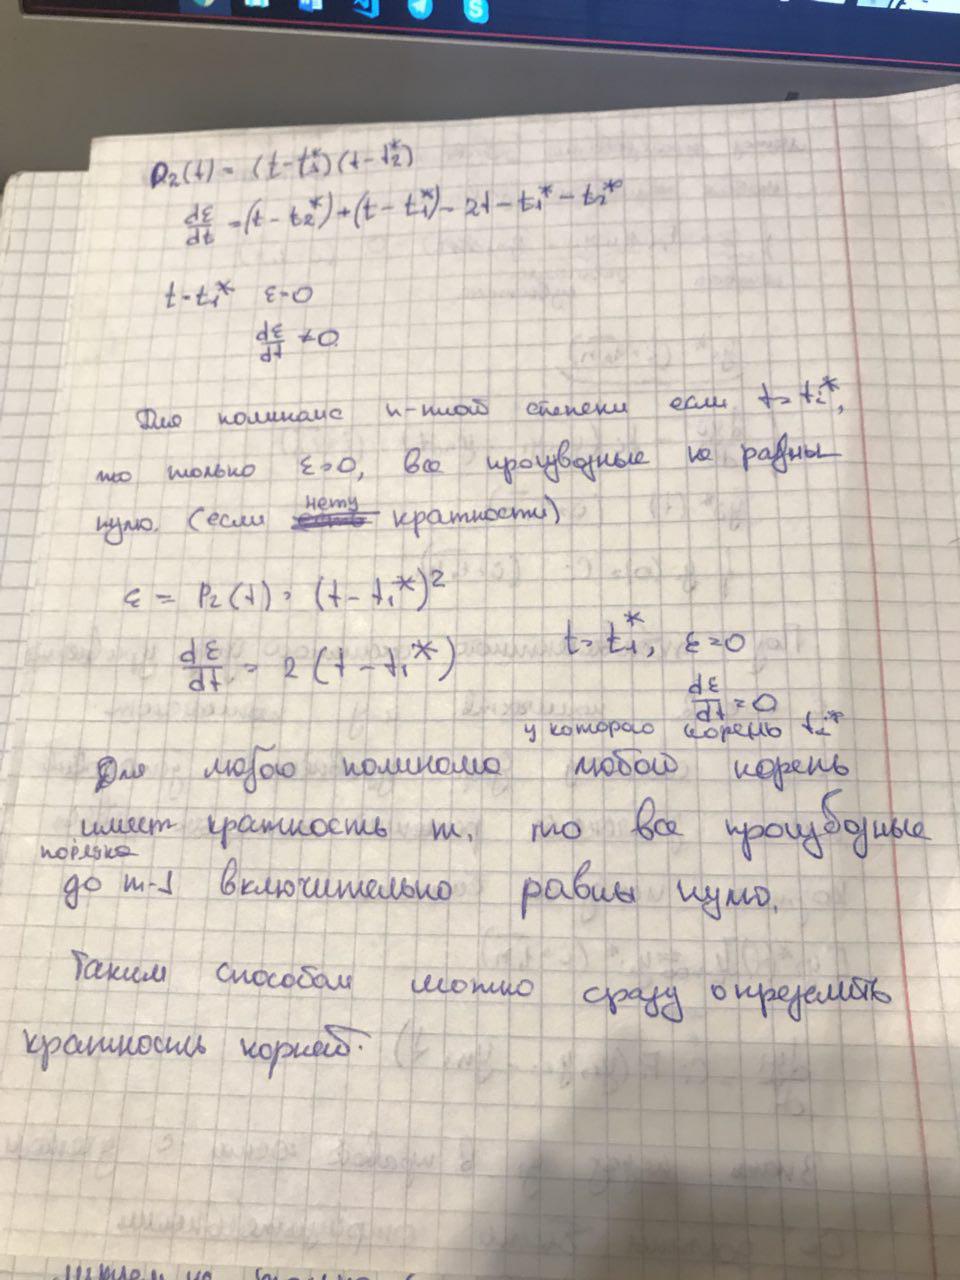 P₂(t) = (t - t₁*)(t - t₂*)
dε/dt = (t - t₂*) + (t - t₁*) = 2t - t₁* - t₂*
t = t₁* ε=0
dε/dt ≠ 0
Для полинома n-ной степени если t = tᵢ*,
то только ε=0, все производные не равны
нету
нулю. (если кратности)
ε = P₂(t) = (t - t₁*)²
dε/dt = 2(t - t₁*) t = t₁*, ε=0
dε/dt = 0
у которого корень tᵢ*
Для любого полинома любой корень
имеет кратность m, то все производные
порядка
до m-1 включительно равны нулю.
Таким способом можно сразу определить
кратность корней.